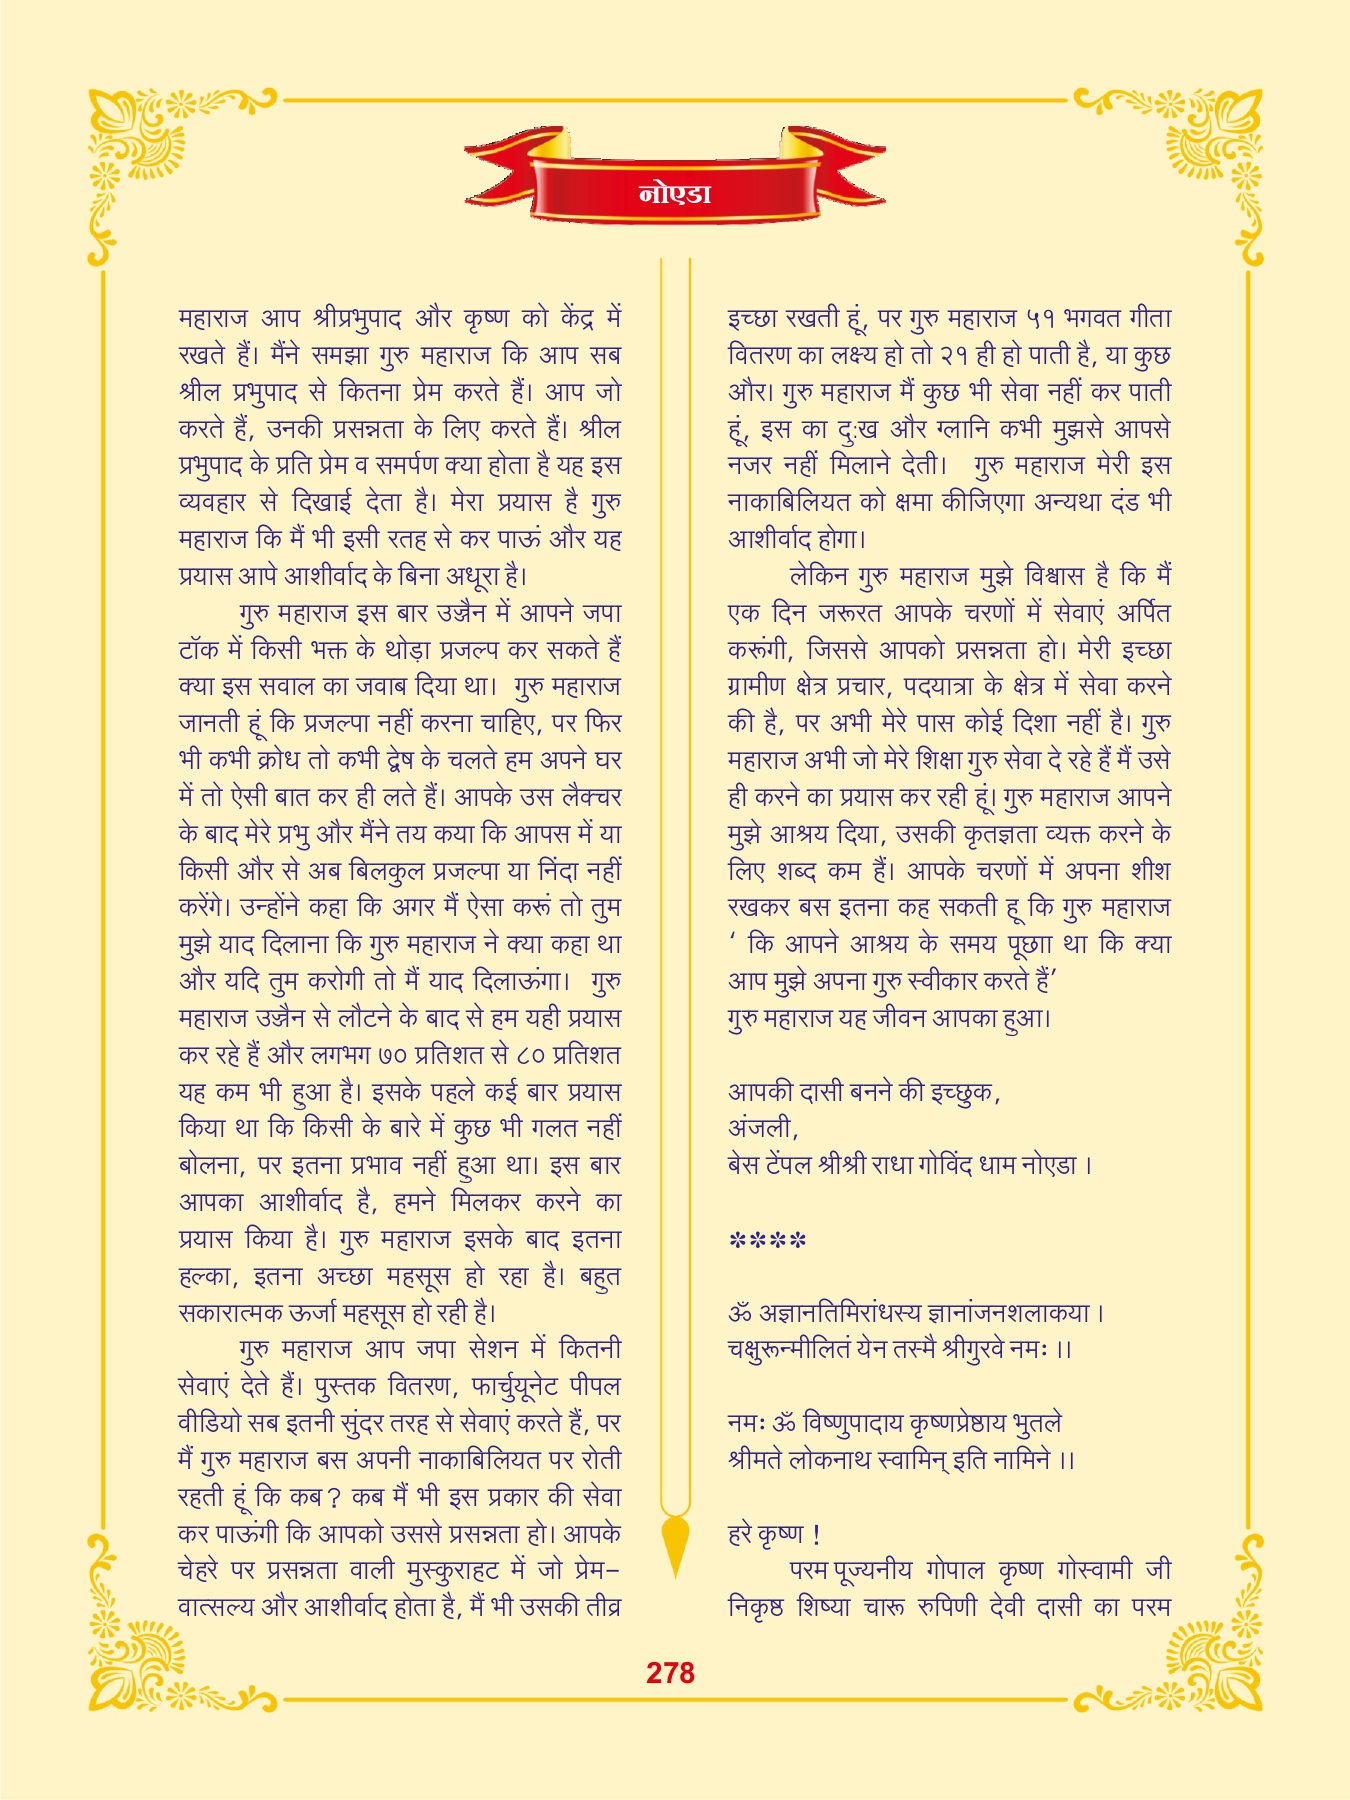 नोएडा
महाराज आप श्रीप्रभुपाद और कृष्ण को केंद्र में
रखते हैं। मैंने समझा गुरु महाराज कि आप सब
श्रील प्रभुपाद से कितना प्रेम करते हैं। आप जो
करते हैं, उनकी प्रसन्नता के लिए करते हैं। श्रील
प्रभुपाद के प्रति प्रेम व समर्पण क्या होता है यह इस
व्यवहार से दिखाई देता है। मेरा प्रयास है गुरु
महाराज कि मैं भी इसी रतह से कर पाऊं और यह
प्रयास आपे आशीर्वाद के बिना अधूरा है।
गुरु महाराज इस बार उज्जैन में आपने जपा
टॉक में किसी भक्त के थोड़ा प्रजल्प कर सकते हैं
क्या इस सवाल का जवाब दिया था। गुरु महाराज
जानती हूं कि प्रजल्पा नहीं करना चाहिए, पर फिर
भी कभी क्रोध तो कभी द्वेष के चलते हम अपने घर
में तो ऐसी बात कर ही लते हैं। आपके उस लैक्चर
के बाद मेरे प्रभु और मैंने तय कया कि आपस में या
किसी और से अब बिलकुल प्रजल्पा या निंदा नहीं
करेंगे। उन्होंने कहा कि अगर मैं ऐसा करूं तो तुम
मुझे याद दिलाना कि गुरु महाराज ने क्या कहा था
और यदि तुम करोगी तो मैं याद दिलाऊंगा। गुरु
महाराज उज्जैन से लौटने के बाद से हम यही प्रयास
कर रहे हैं और लगभग ७० प्रतिशत से ८० प्रतिशत
यह कम भी हुआ है। इसके पहले कई बार प्रयास
किया था कि किसी के बारे में कुछ भी गलत नहीं
बोलना, पर इतना प्रभाव नहीं हुआ था। इस बार
आपका आशीर्वाद है, हमने मिलकर करने का
प्रयास किया है। गुरु महाराज इसके बाद इतना
हल्का, इतना अच्छा महसूस हो रहा है। बहुत
सकारात्मक ऊर्जा महसूस हो रही है।
गुरु महाराज आप जपा सेशन में कितनी
सेवाएं देते हैं। पुस्तक वितरण, फार्चुयूनेट पीपल
वीडियो सब इतनी सुंदर तरह से सेवाएं करते हैं, पर
मैं गुरु महाराज बस अपनी नाकाबिलियत पर रोती
रहती हूं कि कब? कब मैं भी इस प्रकार की सेवा
कर पाऊंगी कि आपको उससे प्रसन्नता हो। आपके
चेहरे पर प्रसन्नता वाली मुस्कुराहट में जो प्रेम-
वात्सल्य और आशीर्वाद होता है, मैं भी उसकी तीव्र
इच्छा रखती हूं, पर गुरु महाराज ५१ भगवत गीता
वितरण का लक्ष्य हो तो २१ ही हो पाती है, या कुछ
और। गुरु महाराज मैं कुछ भी सेवा नहीं कर पाती
हूं, इस का दुःख और ग्लानि कभी मुझसे आपसे
नजर नहीं मिलाने देती। गुरु महाराज मेरी इस
नाकाबिलियत को क्षमा कीजिएगा अन्यथा दंड भी
आशीर्वाद होगा।
लेकिन गुरु महाराज मुझे विश्वास है कि मैं
एक दिन जरूरत आपके चरणों में सेवाएं अर्पित
करूंगी, जिससे आपको प्रसन्नता हो। मेरी इच्छा
ग्रामीण क्षेत्र प्रचार, पदयात्रा के क्षेत्र में सेवा करने
की है, पर अभी मेरे पास कोई दिशा नहीं है। गुरु
महाराज अभी जो मेरे शिक्षा गुरु सेवा दे रहे हैं मैं उसे
ही करने का प्रयास कर रही हूं। गुरु महाराज आपने
मुझे आश्रय दिया, उसकी कृतज्ञता व्यक्त करने के
लिए शब्द कम हैं। आपके चरणों में अपना शीश
रखकर बस इतना कह सकती हू कि गुरु महाराज
‘ कि आपने आश्रय के समय पूछाा था कि क्या
आप मुझे अपना गुरु स्वीकार करते हैं’
गुरु महाराज यह जीवन आपका हुआ।
आपकी दासी बनने की इच्छुक,
अंजली,
बेस टेंपल श्रीश्री राधा गोविंद धाम नोएडा ।
****
ॐ अज्ञानतिमिरांधस्य ज्ञानांजनशलाकया ।
चक्षुरून्मीलितं येन तस्मै श्रीगुरवे नमः ।।
नमः ॐ विष्णुपादाय कृष्णप्रेष्ठाय भुतले
श्रीमते लोकनाथ स्वामिन् इति नामिने ।।
हरे कृष्ण !
परम पूज्यनीय गोपाल कृष्ण गोस्वामी जी
निकृष्ठ शिष्या चारू रुपिणी देवी दासी का परम
278